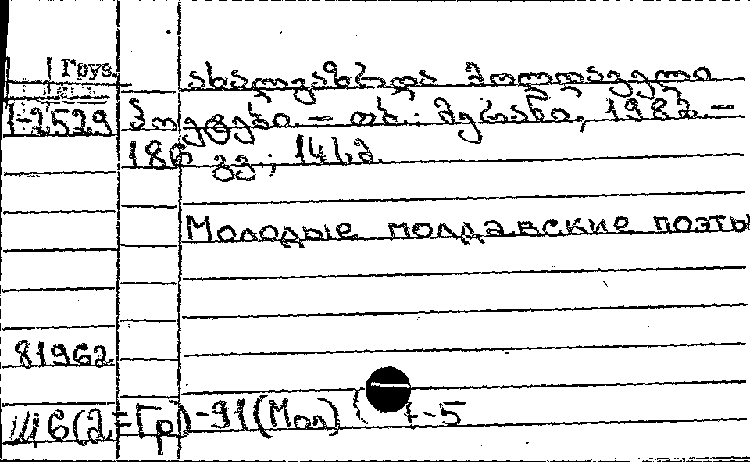 Груз.
ახალგაზრდა მოლდაველი
1-2529 პოეტები. – თბ.: მერანი, 1982. –
186 გვ.; 14 სმ.
Молодые молдавские поэты
81962
Ш6(2=Гр)-91(Мол) -5